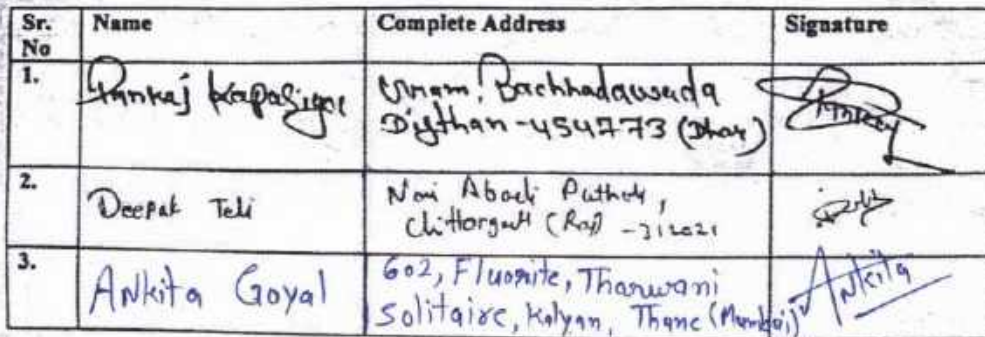 Sr. No Name Complete Address Signature
1. Pankaj Kapadiya Gram. Bachhadawada
Digthan - 454773 (Dhar)
Pankaj
2. Deepak Teli Nai Abadi Putholi,
Chittorgarh (Raj) - 312021
3. Ankita Goyal 602, Fluorite, Tharwani
Solitaire, Kalyan, Thane (Mumbai)
Ankita